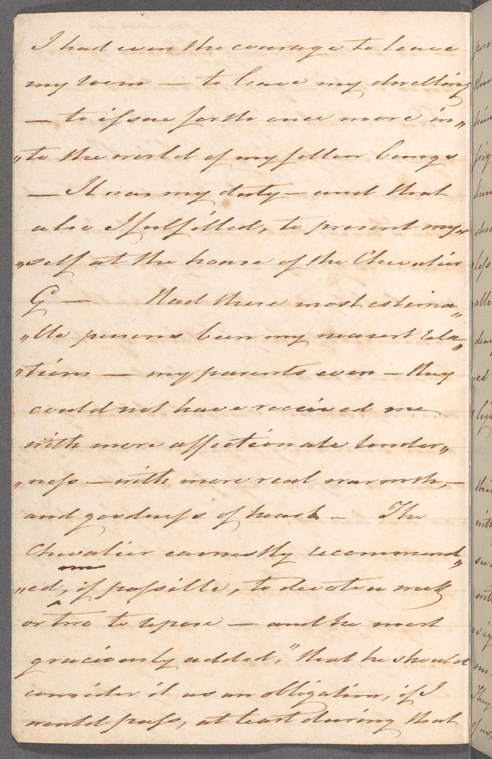 I had even the courage to leave
my room — to leave my dwelling
— to issue forth once more in„
„to the world of my fellow beings
— It was my duty — and that
also I fulfilled, to present my„
„self at the house of the Chevalier
G — Had these most estima„
„ble persons been my nearest rela„
„tions — my parents even — they
could not have received me
with more affectionate tender„
„ness — with more real warmth, —
and goodness of heart — The
Chevalier earnestly recommend„
„ed, if possible, to devote a week
or two to repose — and he most
graciously added, "that he should
consider it as an obligation, if I
would pass, at least during that